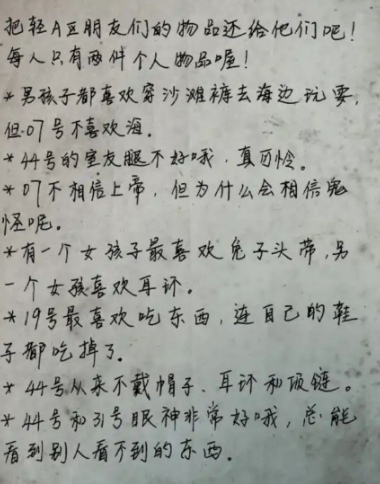 把轻A区朋友们的物品还给他们吧!
每人只有两件个人物品喔!
*男孩子都喜欢穿沙滩裤去海边玩耍,
但07号不喜欢海。
*44号的室友腿不好哦,真可怜。
*07不相信上帝,但为什么会相信鬼
怪呢。
*有一个女孩子最喜欢兔子头带,另
一个女孩喜欢耳环。
*19号最喜欢吃东西,连自己的鞋
子都吃掉了。
*44号从来不戴帽子、耳环和项链。
*44号和31号眼神非常好哦,总能
看到别人看不到的东西。